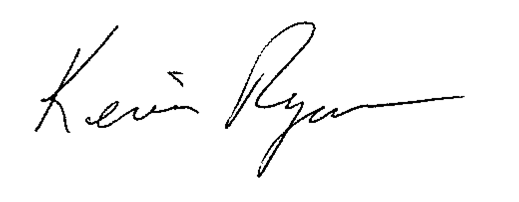 Kevin Ryan